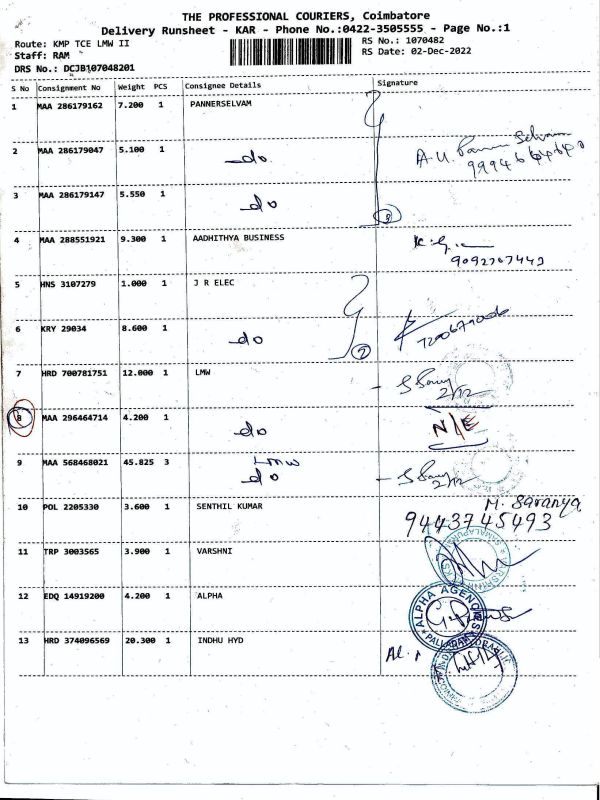 THE PROFESSIONAL COURIERS, Coimbatore
Delivery Runsheet - KAR - Phone No.:0422-3505555 - Page No.:1
Route: KMP TCE LMW II
RS No.: 1070482
Staff: RAM
RS Date: 02-Dec-2022
DRS No.: DCJB107048201
S No Consignment No Weight PCS Consignee Details Signature
1 MAA 286179162 7.200 1 PANNERSELVAM
2 MAA 286179047 5.100 1 do
3 MAA 286179147 5.550 1 do 3
4 MAA 288551921 9.300 1 AADHITHYA BUSINESS
5 HNS 3107279 1.000 1 J R ELEC
6 KRY 29034 8.600 1 do 2
7 HRD 700781751 12.000 1 LMW
2/12
8 MAA 296464714 4.200 1 do N/E
9 MAA 568468021 45.825 3 LMW
do 2/12
10 POL 2205330 3.600 1 SENTHIL KUMAR M. Saranya
9443745493
11 TRP 3003565 3.900 1 VARSHNI
12 EDQ 14919200 4.200 1 ALPHA
ALPHA AGENCIES
13 HRD 374096569 20.300 1 INDHU HYD